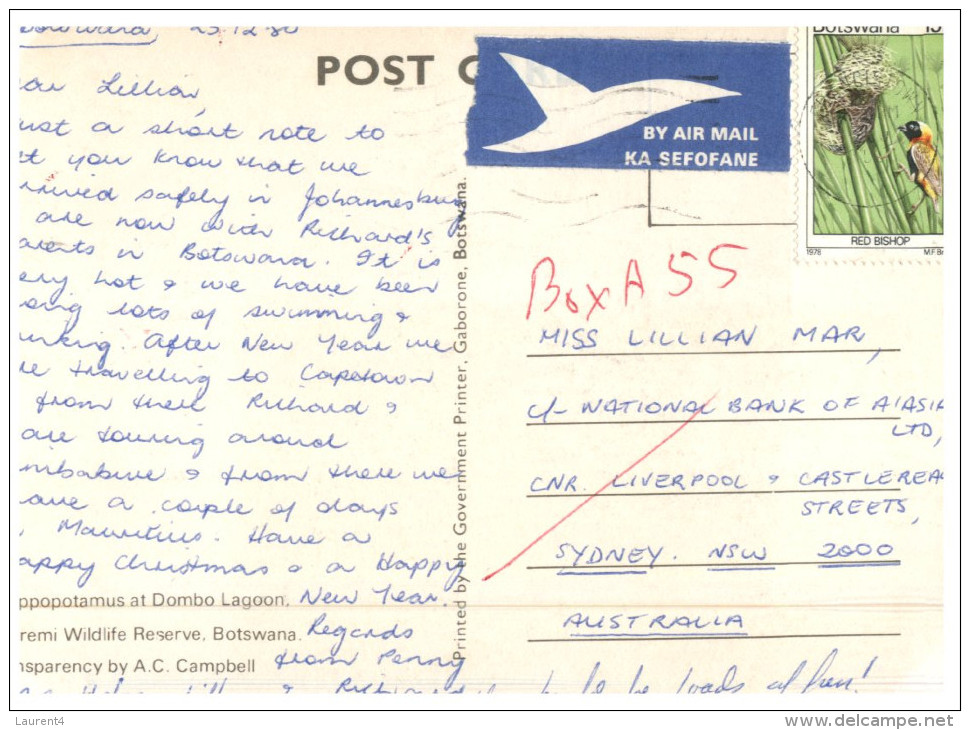 23.12.80
Lillian,
ust a short note to
t you know that we
rrived safely in Johannesburg
are now with Richard's
arents in Botswana. It is
ery hot & we have been
oing lots of swimming &
inking. After New Year we
re travelling to Capetown
from there Richard &
are touring around
mbabwe & from there we
ave a couple of days
Mauritius. Have a
appy Christmas & a Happy
New Year.
Regards
from Penny
& Richard
loads of fun!
ppopotamus at Dombo Lagoon,
remi Wildlife Reserve, Botswana.
nsparency by A.C. Campbell
Printed by the Government Printer, Gaborone, Botswana.
POST
BY AIR MAIL
KA SEFOFANE
Botswana 15
RED BISHOP
1978 M.F.Br
Box A 55
MISS LILLIAN MAR,
C/- NATIONAL BANK OF A'ASIA
LTD,
CNR. LIVERPOOL & CASTLEREA
STREETS,
SYDNEY. NSW 2000
AUSTRALIA
Laurent4
www.delcampe.net